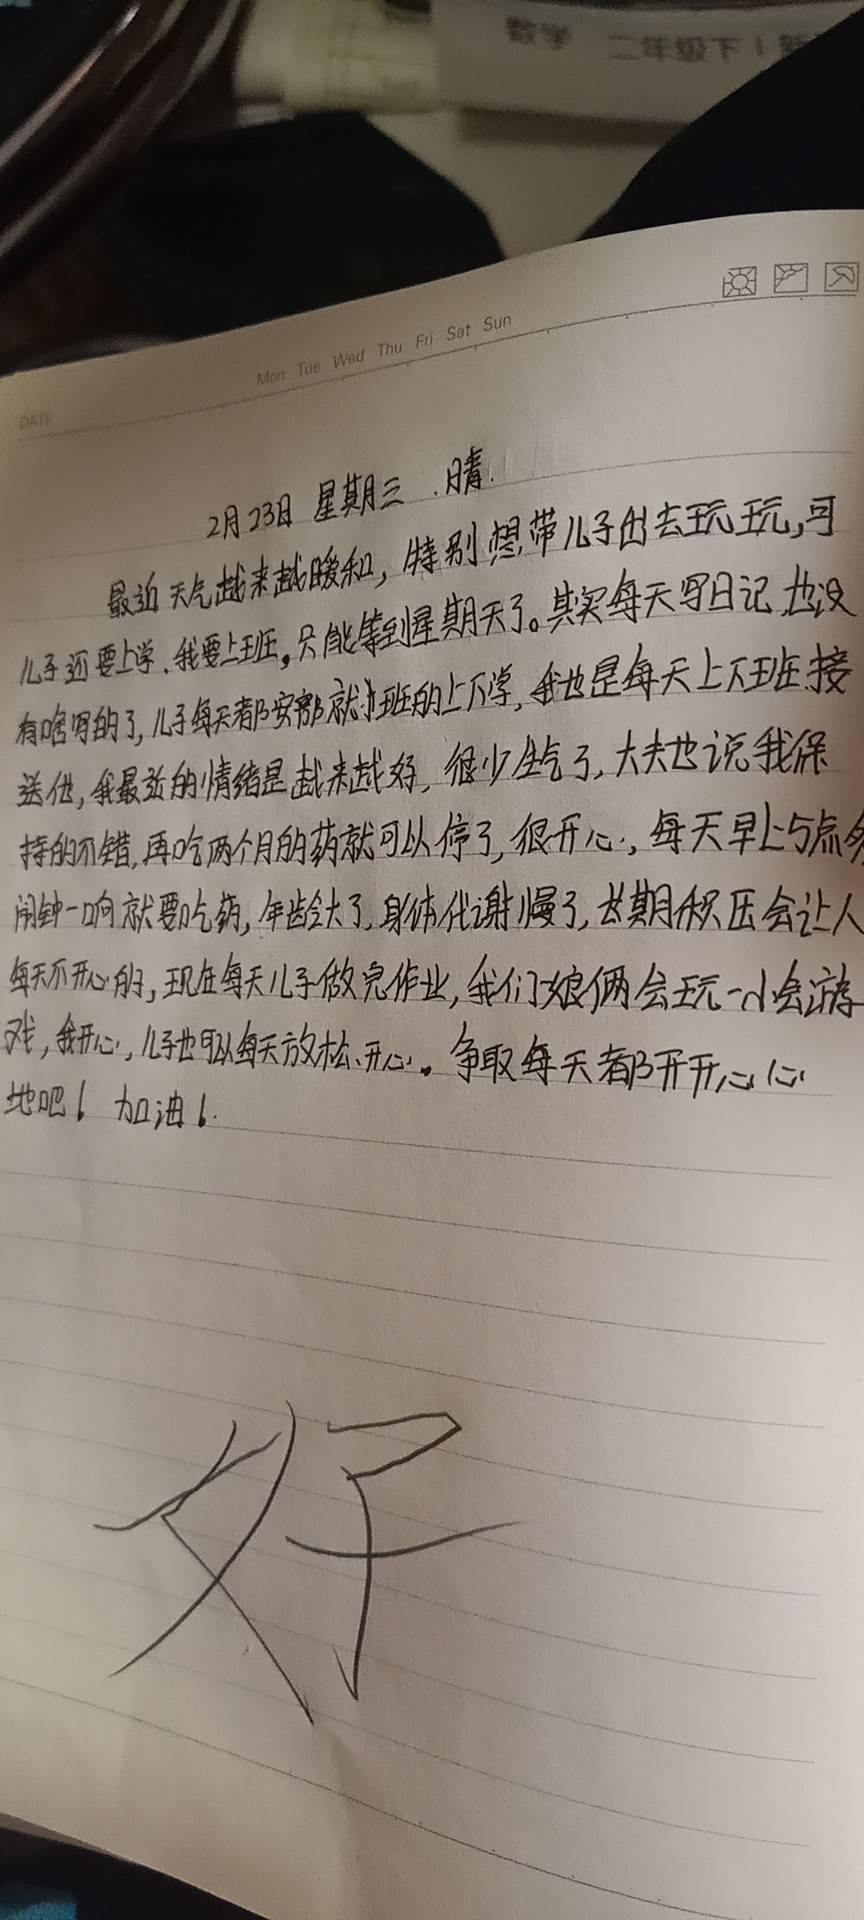 数学 二年级下
Mon Tue Wed Thu Fri Sat Sun
DATE
2月23日 星期三 .晴.
最近天气越来越暖和,特别想带儿子出去玩玩,可
儿子还要上学.我要上班,只能等到星期天了。其实每天写日记也没
有啥写的了,儿子每天都安部就班的上下学,我也是每天上下班.接
送他,我最近的情绪是越来越好,很少生气了,大夫也说我保
持的不错,再吃两个月的药就可以停了,很开心,每天早上5点多
闹钟一响就要吃药,年龄大了,身体代谢慢了,长期积压会让人
每天不开心的,现在每天儿子做完作业,我们娘俩会玩一小会游
戏,我开心,儿子也可以每天放松、开心。争取每天都开开心心
地吧! 加油!
好